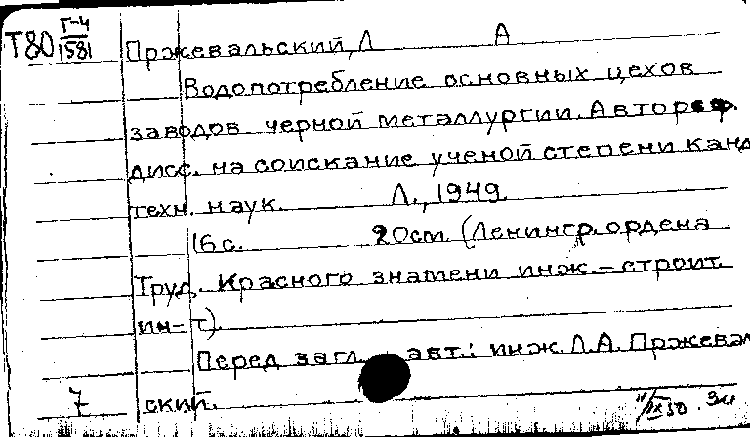 Т80 Г-4/1581
Пржевальский, Л А
Водопотребление основных цехов
заводов черной металлургии. Автореф.
дисс. на соискание ученой степени канд
техн. наук. Л., 1949
16 с. 20 см. (Ленингр. ордена
Труд. Красного знамени инж.-строит.
ин-т).
Перед загл. авт.: инж. Л.А. Пржеваль
7 ский.